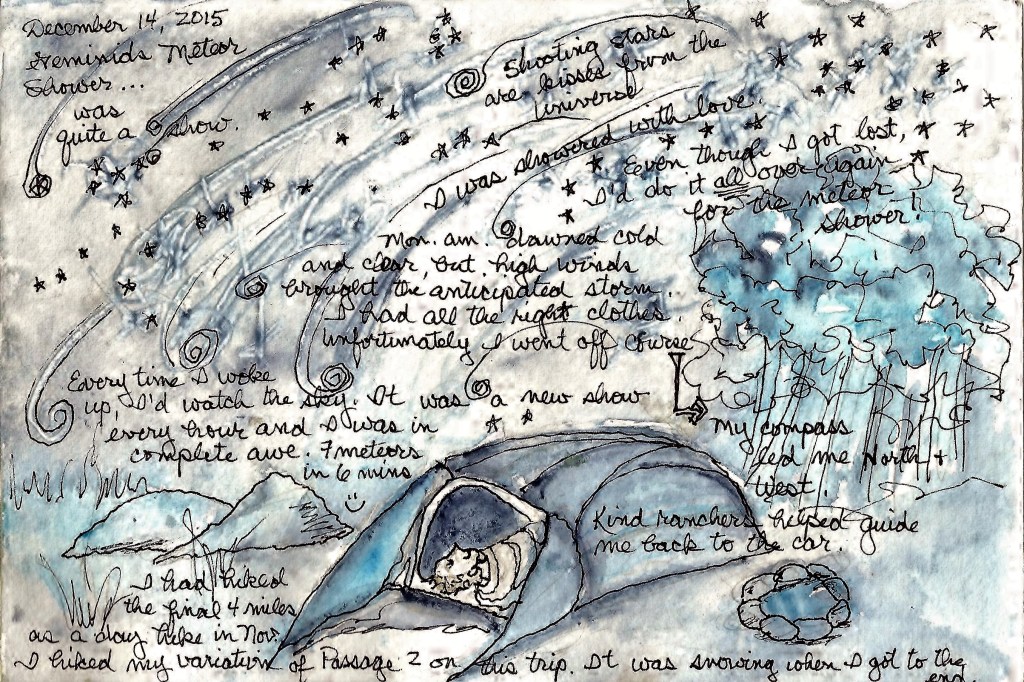 December 14, 2015
Geminids Meteor
Shower...
was
quite a show.
Shooting stars
are kisses from the
universe
I was showered with love.
Even though I got lost,
I'd do it all over again
for the meteor
shower.
Mon. am. dawned cold
and clear, but high winds
brought the anticipated storm.
I had all the right clothes.
Unfortunately I went off course
My compass
led me North +
West.
Kind ranchers helped guide
me back to the car.
Every time I woke
up, I'd watch the sky. It was a new show
every hour and I was in
complete awe. 7 meteors
in 6 mins
I had hiked
the final 4 miles
as a day hike in Nov.
I hiked my variation of Passage 2 on this trip. It was snowing when I got to the
end.